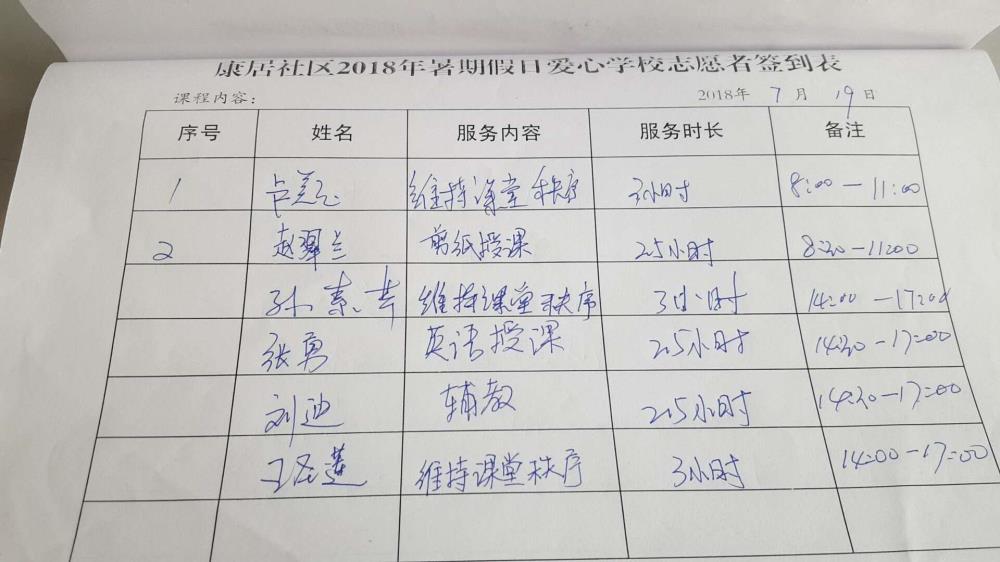 康居社区2018年暑期假日爱心学校志愿者签到表
课程内容： 2018年 7 月 19 日
序号 姓名 服务内容 服务时长 备注
1 维持课堂秩序 3小时 8:00-11:00
2 赵翠兰 剪纸授课 2.5小时 8:30-11:00
维持课堂秩序 3小时 14:00-17:00
张勇 英语授课 2.5小时 14:30-17:00
刘迪 辅教 2.5小时 14:30-17:00
维持课堂秩序 3小时 14:00-17:00